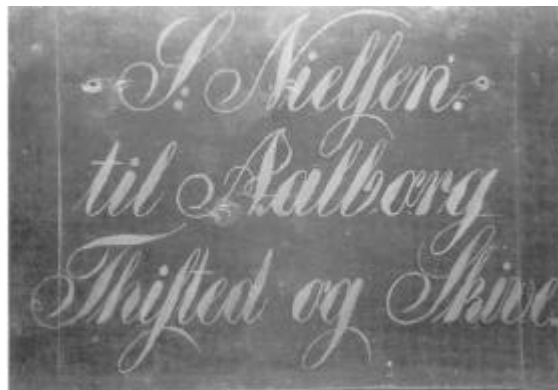 S: Nielſen:
til Aalborg
Thiſted og Skive